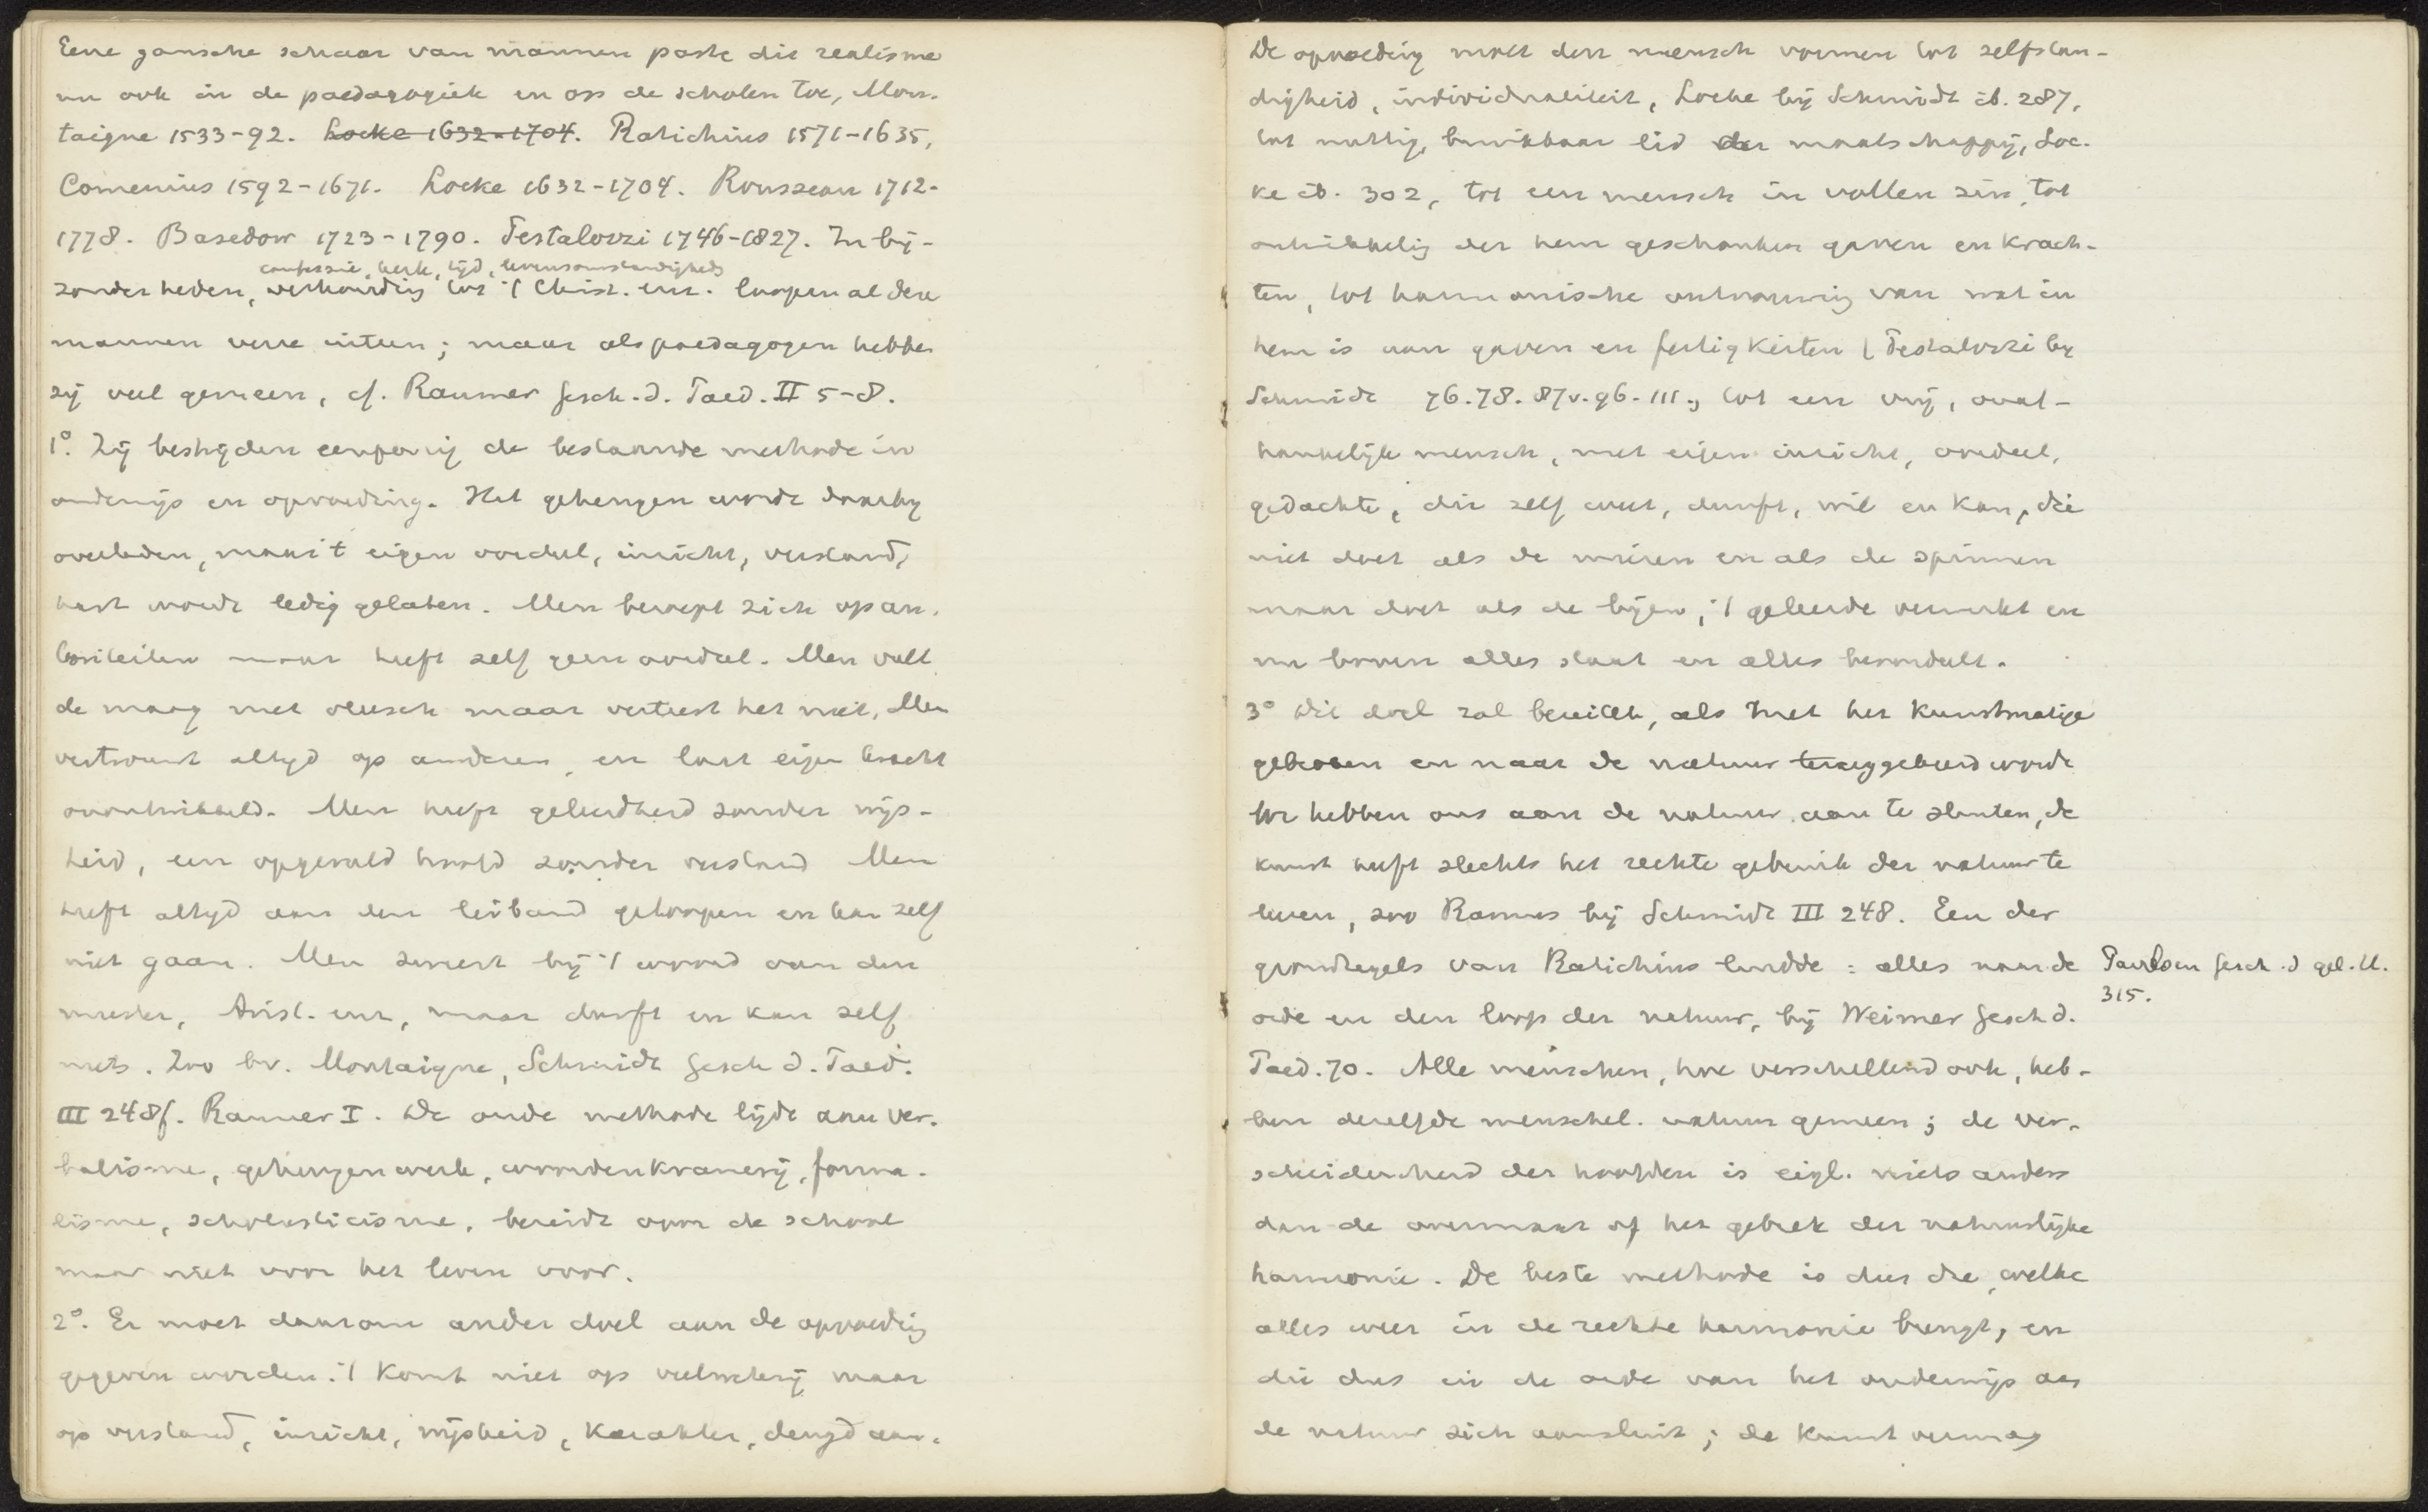 Eene gansche schaar van mannen paste dit realisme
nu ook in de paedagogiek en op de scholen toe, Mon-
taigne 1533-92. Locke 1632-1704. Ratichius 1571-1635,
Comenius 1592-1671. Locke 1632-1704. Rousseau 1712-
1778. Basedow 1723-1790. Pestalozzi 1746-1827. In bij-
confessie, kerk, tijd, levensomstandigheds
zonderheden, verhouding tot 't Christ. enz. loopen al deze
mannen verre uiteen; maar als paedagogen hebben
zij veel gemeen, cf. Raumer Gesch. d. Paed. II 5-8.
1°. Zij bestrijden eenparig de bestaande methode in
onderwijs en opvoeding. Het geheugen wordt daarbij
overladen, maar 't eigen oordeel, inzicht, verstand,
hart wordt ledig gelaten. Men beroept zich op au-
toriteiten maar heeft zelf geen oordeel. Men vult
de maag met vleesch maar verteert het niet, Men
vertrouwt altijd op anderen, en laat eigen kracht
onontwikkeld. Men heeft geleerdheid zonder wijs-
heid, een opgevuld hoofd zonder verstand Men
heeft altijd aan den leiband geloopen en kan zelf
niet gaan. Men zweert bij 't woord van den
meester, Arist. enz, maar durft en kan zelf
niets. Zoo bv. Montaigne, Schmidt Gesch d. Paed.
III 248f. Raumer I. De oude methode lijdt aan ver-
balisme, geheugenwerk, woordenkramerij, forma-
lisme, scholasticisme, bereidt voor de school
maar niet voor het leven voor.
2°. Er moet daarom ander doel aan de opvoeding
gegeven worden. 't Komt niet op veelweterij maar
op verstand, inzicht, wijsheid, karakter, deugd aan.
De opvoeding moet den mensch vormen tot zelfstan-
digheid, individualiteit, Locke bij Schmidt ib. 287,
tot nuttig, bruikbaar lid der maatschappij, Loc-
ke ib. 302, tot een mensch in vollen zin, tot
ontwikkelig der hem geschonken gaven en krach-
ten, tot harmonische ontvouwing van wat in
hem is aan gaven en fertigkeiten (Pestalozzi by
Schmidt 76.78.87v.96.111., tot een vrij, onaf-
hankelijk mensch, met eigen inzicht, oordeel,
gedachte, die zelf weet, durft, wil en kan, die
niet doet als de mieren en als de spinnen
maar doet als de bijen, 't geleerde verwerkt en
nu boven alles staat en alles beoordeelt.
3° Dit doel zal bereikt, als met het kunstmatige
gebroken en naar de natuur teruggekeerd wordt
We hebben ons aan de natuur aan te sluiten, de
kunst heeft slechts het rechte gebruik der natuur te
leeren, zoo Ramus bij Schmidt III 248. Een der
grondregels van Ratichius luidde: alles naar de
orde en den loop der natuur, bij Weimer Gesch d.
Paed. 70. Alle menschen, hoe verschillend ook, heb-
ben dezelfde menschel. natuur gemeen; de ver-
scheidenheid der hoofden is eigl. niets anders
dan de overmaat of het gebrek der natuurlijke
harmonie. De beste methode is dus die, welke
alles weer in de rechte harmonie brengt, en
die dus in de orde van het onderwijs aan
de natuur zich aansluit; de kunst vermag
Paulsen Gesch. d gel. U.
315.